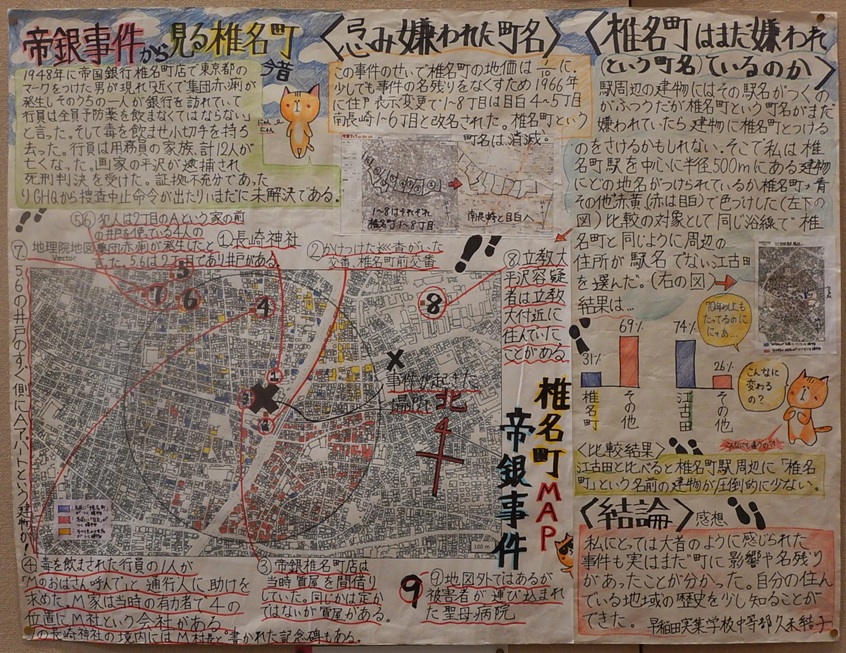 帝銀事件から見る椎名町
今昔
1948年に帝国銀行椎名町店で東京都の
マークをつけた男が現れ「近くで集団赤痢が
発生しその5の一人が銀行を訪れていて
行員は全員予防薬を飲まなくてはならない」
と言った。そして毒を飲ませ小切手を持ち
去った。行員は用務員の家族、計12人が
亡くなった。画家の平沢が逮捕され
死刑判決を受けた。証拠不充分であった
りGHQから捜査中止命令が出たりいまだに未解決である。
〈忌み嫌われた町名〉
この事件のせいで椎名町の地価は1/10に、
少しでも事件の名残りをなくすため1966年
に住戸表示変更で1~8丁目は目白4~5丁目
南長崎1~6丁目と改名された。椎名町という
町名は消滅。
1~8はそれぞれ
椎名町1~8丁目
南長崎と目白へ
〈椎名町はまだ嫌われ
(という町名)ているのか〉
駅周辺の建物にはその駅名がつくの
がふつうだが椎名町という町名がまだ
嫌われていたら建物に椎名町とつける
のをさけるかもしれない。そこで私は椎
名町駅を中心に半径500mにある建物
にどの地名がつけられているか椎名町、青
その他赤黄(赤は目白)で色づけした(左下の
図)比較の対象として同じ沿線で椎
名町と同じように周辺の
住所が駅名でない江古田
を選んだ。(右の図)
結果は…
70年以上も
たってるのに
にゃぁ…
31%
69%
74%
26%
椎名町
その他
江古田
その他
こんなに
変わる
の?
〈比較結果〉
江古田と比べると椎名町駅周辺に「椎名
町」という名前の建物が圧倒的に少ない。
〈結論〉感想
私にとっては大昔のように感じられた
事件も実はまだ町に影響や名残り
があったことが分かった。自分の住ん
でいる地域の歴史を少し知ることが
できた。
早稲田実業学校中等部
⑤⑥ 犯人は2丁目のAという家の前
の井戸を使っている4人の
集団赤痢が発生したと
⑦
地理院地図
Vector
①長崎神社
②かけつけた巡査がいた
交番、椎名町前交番
⑧立教大
平沢容疑
者は立教
大付近に
住んでいた
ことがある
5 6の井戸のすぐ側にAアパートという建物が!
5
7
6
4
8
1
3
2
×
事件が起きた
場所
北
4
椎名町MAP
帝銀事件
100 m
④毒を飲まされた行員の1人が
「Mのおばさん呼んで」と通行人に助けを
求めた。M家は当時の有力者で4の
位置にM社という会社がある
①の長崎神社の境内には“M村長”と書かれた記念碑もある。
③帝銀椎名町店は
当時質屋を間借り
していた。同じかは定か
ではないが質屋がある。
9
⑨地図外ではあるが
被害者が運び込まれ
た聖母病院